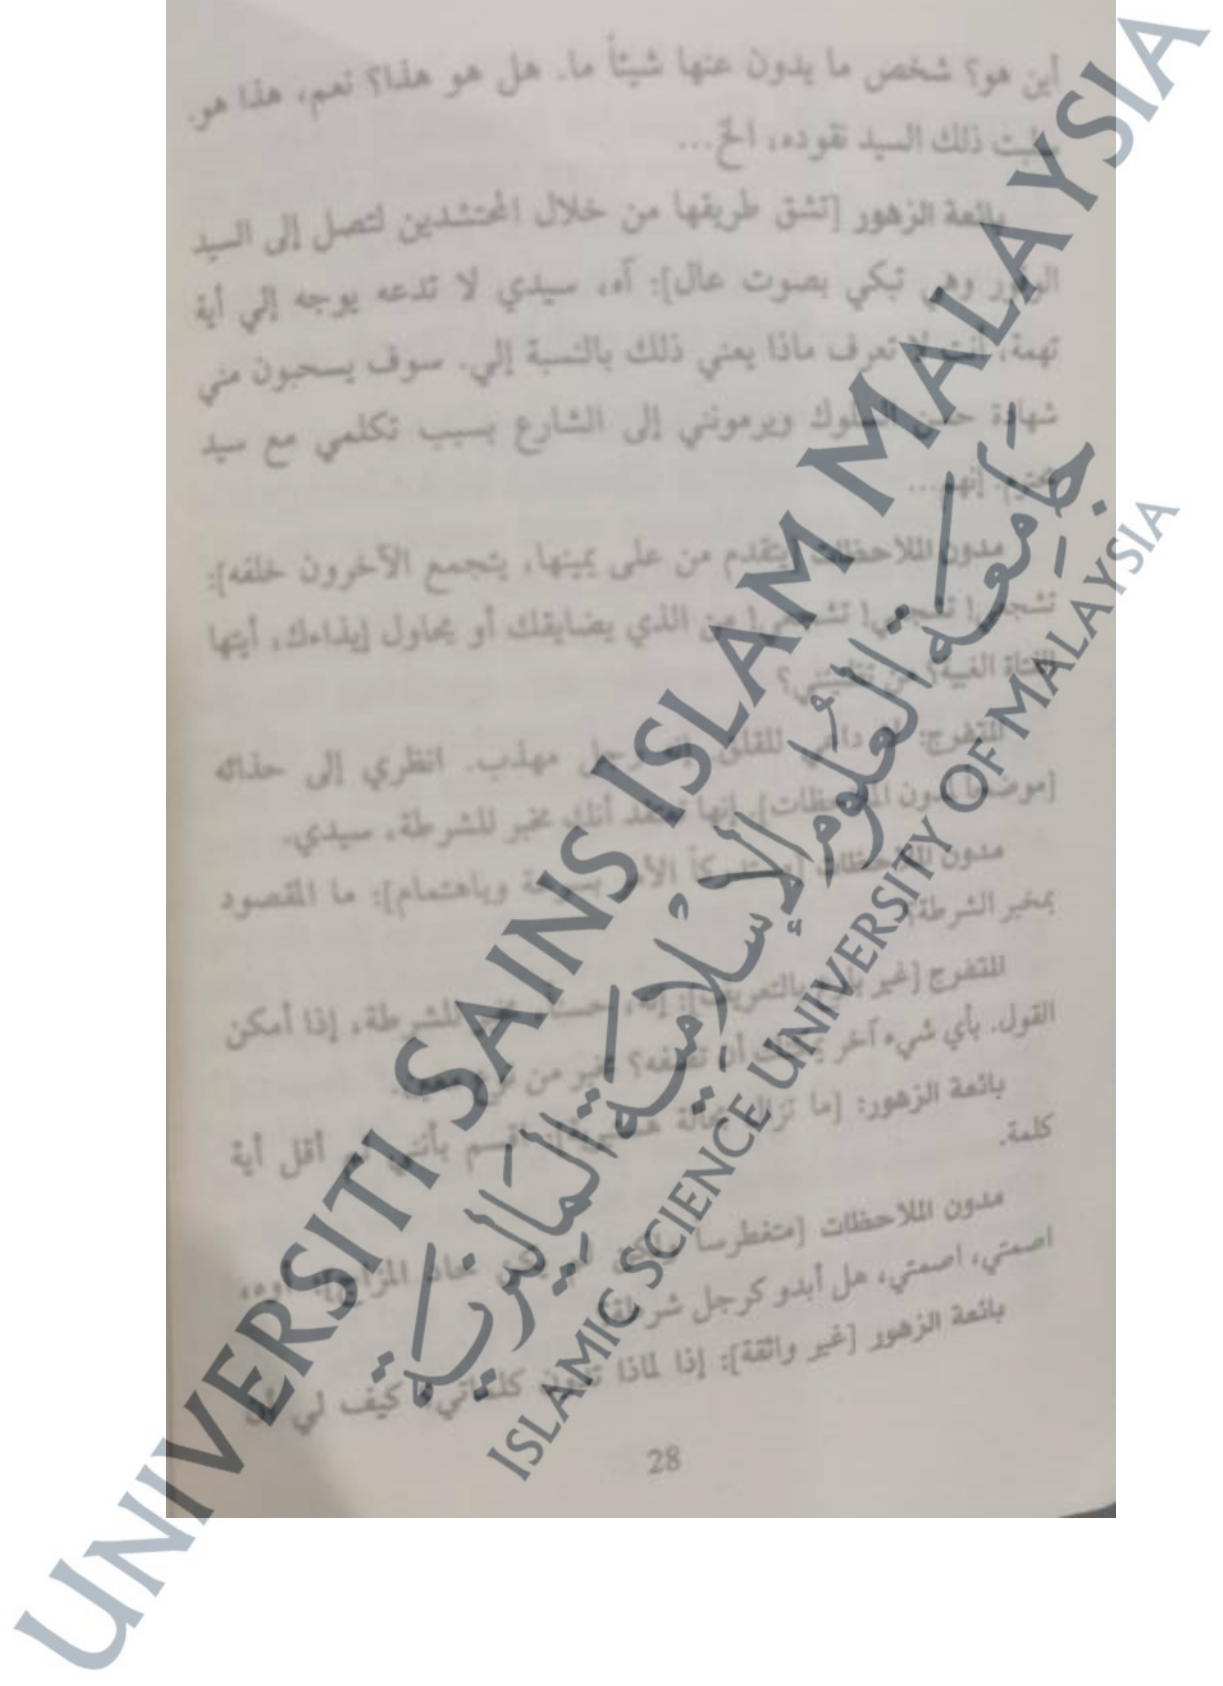 أين هو؟ شخص ما يدون عنها شيئاً ما. هل هو هذا؟ نعم، هذا هو.
ذلك السيد نقوده، الخ...
بائعة الزهور [تشق طريقها من خلال المحتشدين لتصل إلى السيد
الوقور وهي تبكي بصوت عال]: آه، سيدي لا تدعه يوجه إلي أية
تهمة، أنت لا تعرف ماذا يعني ذلك بالنسبة إلي. سوف يسحبون مني
شهادة حسن السلوك ويرمونني إلى الشارع بسبب تكلمي مع سيد
محترم. إنهم...
مدون الملاحظات [يتقدم من على يمينها، يتجمع الآخرون خلفه]:
تشجعي! تشجعي! تشجعي! من الذي يضايقك أو يحاول إيذاءك، أيتها
الفتاة الغبية؟ من تظنينني؟
المتفرج: داعي للقلق. رجل مهذب. انظري إلى حذائه
مدون الملاحظات]. إنها تعتقد أنك مخبر للشرطة، سيدي.
مدون الملاحظات الأمر بسرعة وباهتمام]: ما المقصود
بمخبر الشرطة؟
المتفرج [غير بالتعريف]: إنه، مخبر للشرطة، إذا أمكن
القول. بأي شيء آخر يمكنك أن تصفه؟ مخبر من نوع
بائعة الزهور: [ما تزال بحالة أقسم بأنني لم أقل أية
كلمة.
مدون الملاحظات [متغطرساً ولكن حاد المزاج]: أوه،
اصمتي، اصمتي، هل أبدو كرجل شرطة؟
بائعة الزهور [غير واثقة]: إذا لماذا تدون كلماتي؟ كيف لي أن
28
UNIVERSITI SAINS ISLAM MALAYSIA
جامعة العلوم الإسلامية الماليزية
ISLAMIC SCIENCE UNIVERSITY OF MALAYSIA